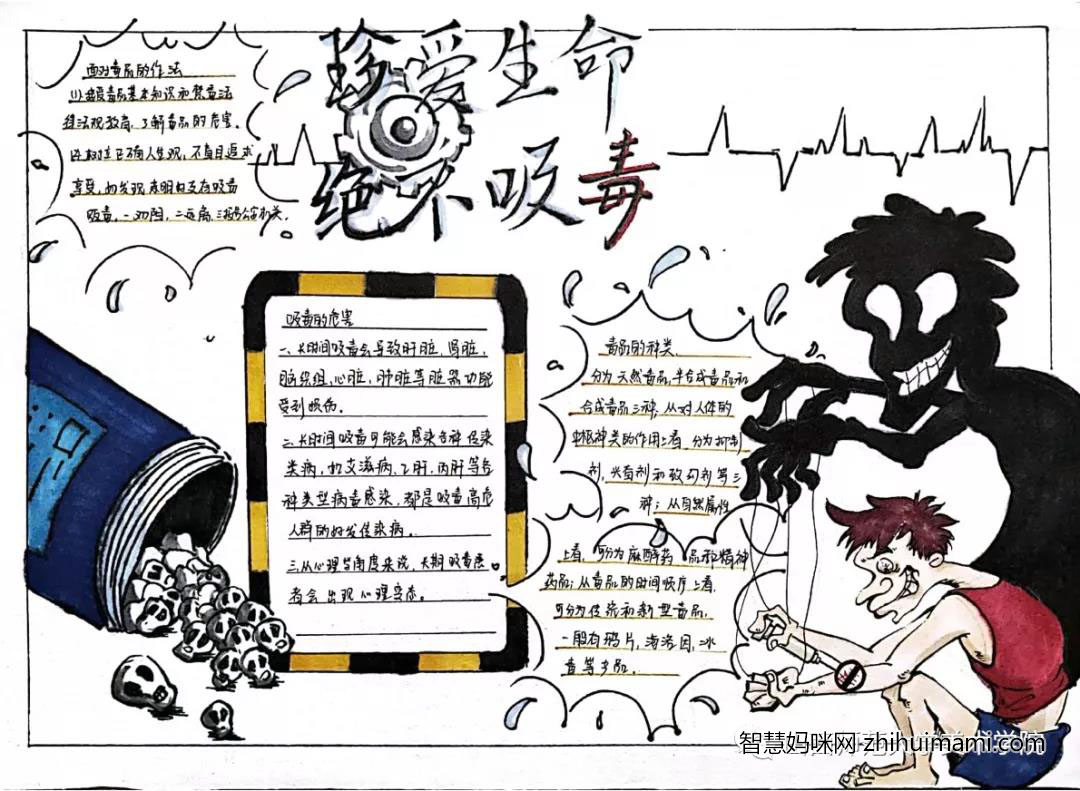 珍爱生命
绝不吸毒
面对毒品的作法
(1)接受毒品基本知识和禁毒法
律法规教育,了解毒品的危害。
(2)树立正确人生观,不盲目追求
享受,如发现亲朋友有吸毒
吸毒,一劝阻,二远离,三报告公安机关。
吸毒的危害
一、长时间吸毒会导致肝脏,肾脏,
脑组织,心脏,肺脏等脏器功能
受到损伤。
二、长时间吸毒可能会感染各种传染
类病,如艾滋病,乙肝,丙肝等各
种类型病毒感染,都是吸毒高危
人群的好发传染病。
三.从心理学角度来说,长期吸毒患
者会出现心理变态。
毒品的种类
分为天然毒品,半合成毒品和
合成毒品三种,从对人体的
中枢神类的作用上看,分为抑制
剂,兴奋剂和致幻剂等三
种;从自然属性
上看,可分为麻醉药品和精神
药品;从毒品的时间顺序上看,
可分为传统和新型毒品,
一般有鸦片,海洛因,冰
毒等多品.
智慧妈咪网 zhihuimami.com